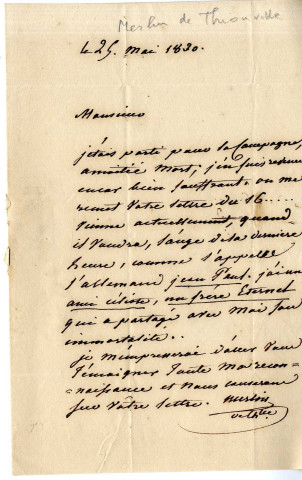 Merlin de Thionville
le 25 mai 1830.
Monsieur
j'étais parti pour la Campagne,
à moitié mort; j'en suis revenu
encor bien souffrant. on me
remet votre lettre du 16.....
vienne actuellement, quand
il voudra, l'ange de la dernière
heure, comme s'appelle
l'allemand jean Paul. j'ai un
ami céleste, un frère Eternel
qui a partagé avec moi son
immortalité..
je m'empresserai d'aller vous
témoigner toute ma recon-
naissance et nous causerons
sur votre lettre. Merlin